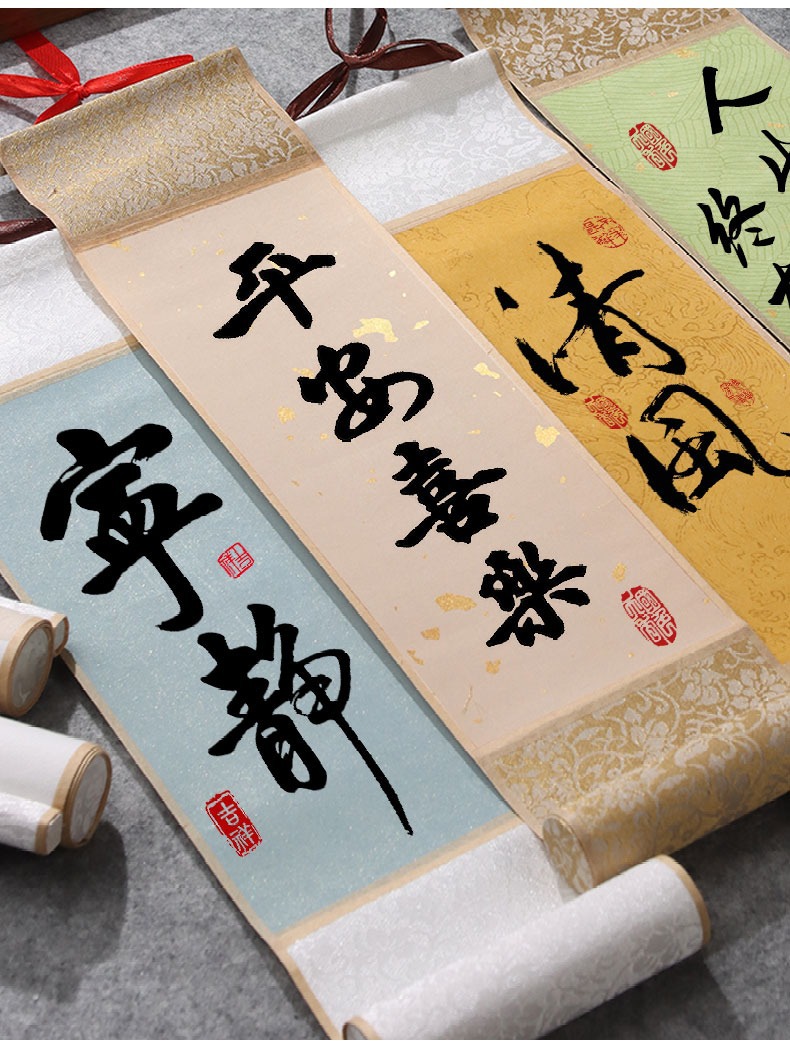 寧静
吉祥
平安喜樂
清風